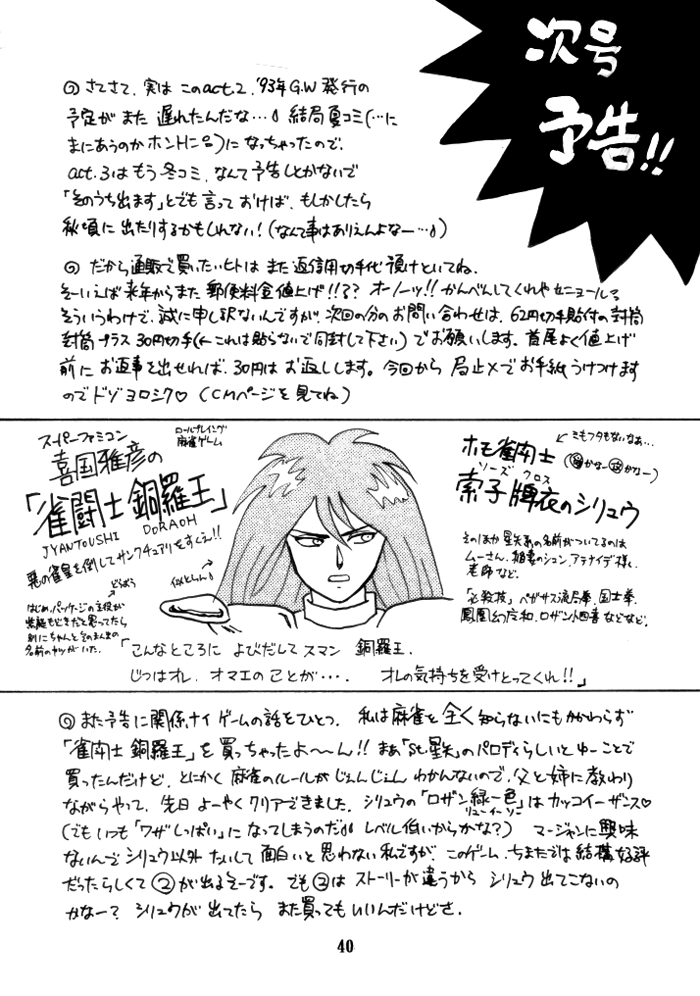 次号
予告!!
◎ さてさて、実は このact.2、'93年G.W発行の
予定が また 遅れたんだな…♪ 結局夏コミ(…に
まにあうのか ホントに)に なっちゃったので、
act.3はもう冬コミ、なんて予告しとかないで
「そのうち出ます」とでも言って おけば、もしかしたら
秋頃に 出たりするかもしれない!(なんて事はありえんよなー…♪)
◎ だから通販で買いたいヒトは また 返信用切手代 預けといてね。
そーいえば来年からまた 郵便料金値上げ!!?? オーノーッ!! かんべんしてくれや セニョール〜
そういうわけで、誠に申し訳ないんですが、次回の分のお問い合わせは、62円切手貼付の封筒
封筒プラス 30円切手(←これは貼らないで同封して下さい)でお願いします。首尾よく値上げ
前に お返事を出せれば、30円は お返しします。今回から 局止メでお手紙うけつけます
のでドゾヨロシク♡ (CMページを見てね)
スーパーファミコン
ロールプレイング
麻雀ゲーム
喜国雅彦の
「雀闘士 銅羅王」
JYANTOUSHI DORAOH
悪の雀皇を倒してサンクチュアリをすくえ!!
どらぼう
はじめ、パッケージの主役が
紫龍もどきだと思ってたら
別にちゃんとそのまんまの
名前のヤツがいた。
似とらん♪
ホモ雀闘士
←ミもフタもないなぁ…
ソーズ クロス
索子牌衣のシリュウ
そのほか 星矢系の名前がついてるのは
ムーさん、稲妻のシュン、アテナイデ様と
老師など。
「必殺技」ペガサス流局拳、国士拳、
鳳凰幻応和、ロザン小四喜などなど。
「こんなところに よびだして スマン 銅羅王、
じつはオレ、オマエの ことが…、 オレの気持ちを受けとってくれ!!」
◎ また予告に関係ナイ ゲームの話をひとつ。 私は麻雀を 全く 知らないにもかかわらず
「雀闘士 銅羅王」を 買っちゃったよ〜〜ん!! まぁ「St.星矢」のパロディらしいと ゆーことで
買ったんだけど、とにかく 麻雀のルールが じぇんじぇん わかんないので、父と姉に教わり
ながらやって、先日 よーやく クリアできました。シリュウの「ロザン緑一色」はカッコイーザンス♡
リューイーソー
(でも いつも「ワザ しっぱい」に なってしまうのだ♪ レベル低いからかな?) マージャンに興味
ないんで シリュウ以外 たいして 面白いと 思わない 私ですが、このゲーム、ちまたでは 結構 好評
だったらしくて ②が出るそーです。でも ②は ストーリーが違うから シリュウ 出てこないの
かなー? シリュウが 出てたら また買っても いいんだけどさ。
40